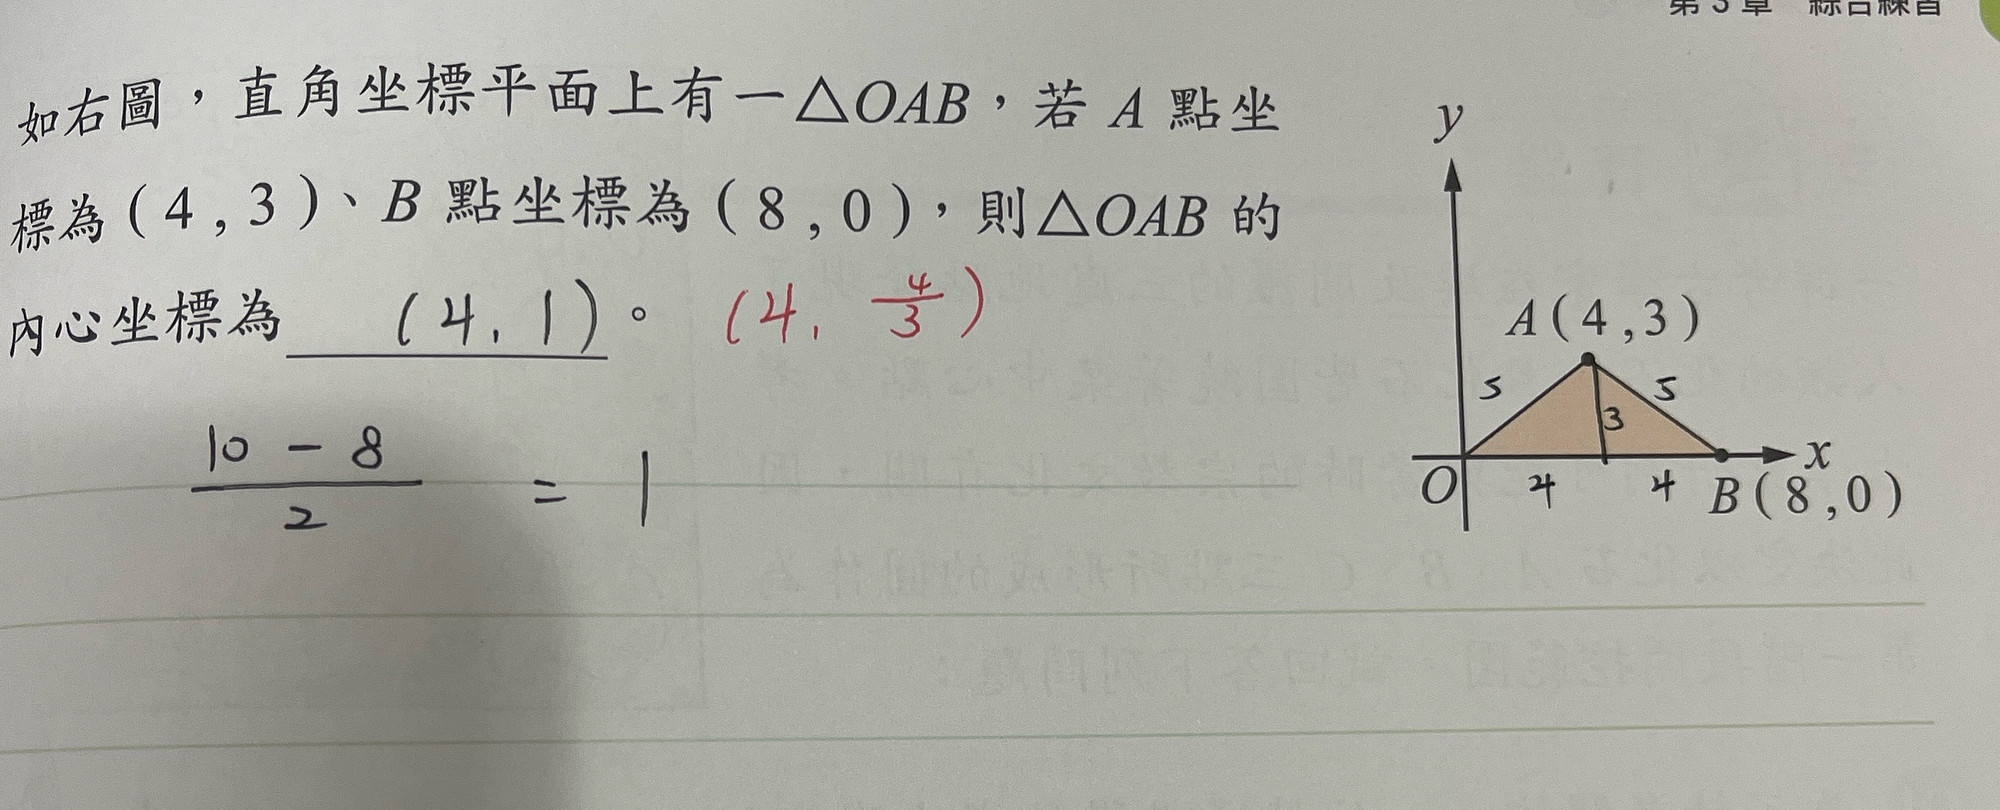 第3章 綜合練習
如右圖,直角坐標平面上有一△OAB,若 A 點坐
標為(4,3)、B 點坐標為(8,0),則△OAB 的
內心坐標為 (4,1)。 (4, 4/3)
10 - 8
2
= 1
y
A(4,3)
5
5
3
x
O
4
4
B(8,0)